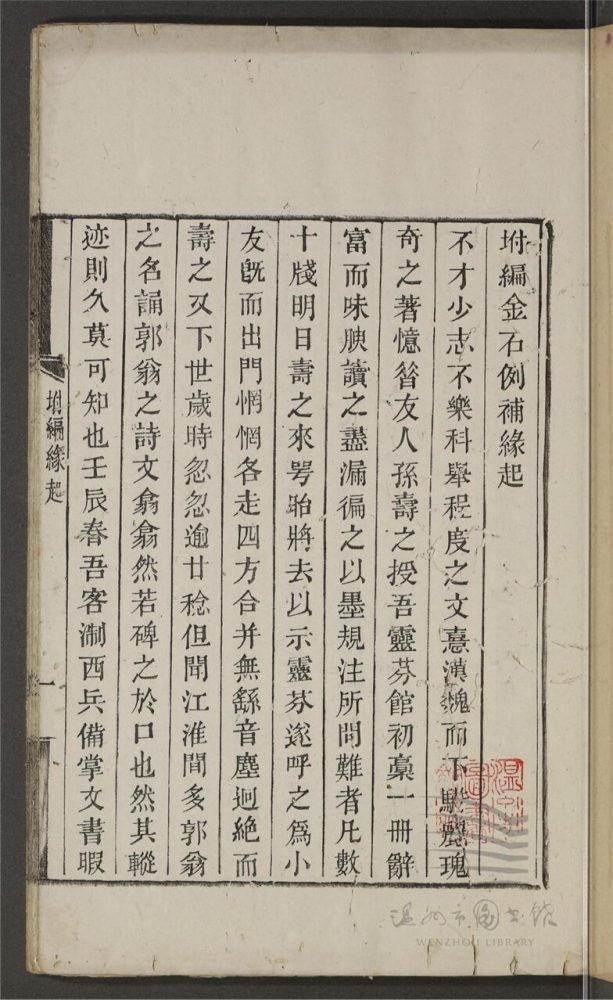 坿編金石例補緣起
不才少志不樂科舉程度之文憙漢魏而下駢麗瑰
奇之著憶咎友人孫壽之授吾靈芬館初稾一冊辭
富而味腴讀之盡漏徧之以墨規注所問難者凡數
十牋明日壽之來咢眙將去以示靈芬遂呼之爲小
友旣而出門惘惘各走四方合并無繇音塵迥絕而
壽之又下世歲時忽忽逾廿稔但聞江淮間多郭翁
之名誦郭翁之詩文翕翕然若碑之於口也然其輟
迹則久莫可知也壬辰春吾客淛西兵備掌文書暇
坿編緣起
一
溫州市图书馆
WENZHOU LIBRARY